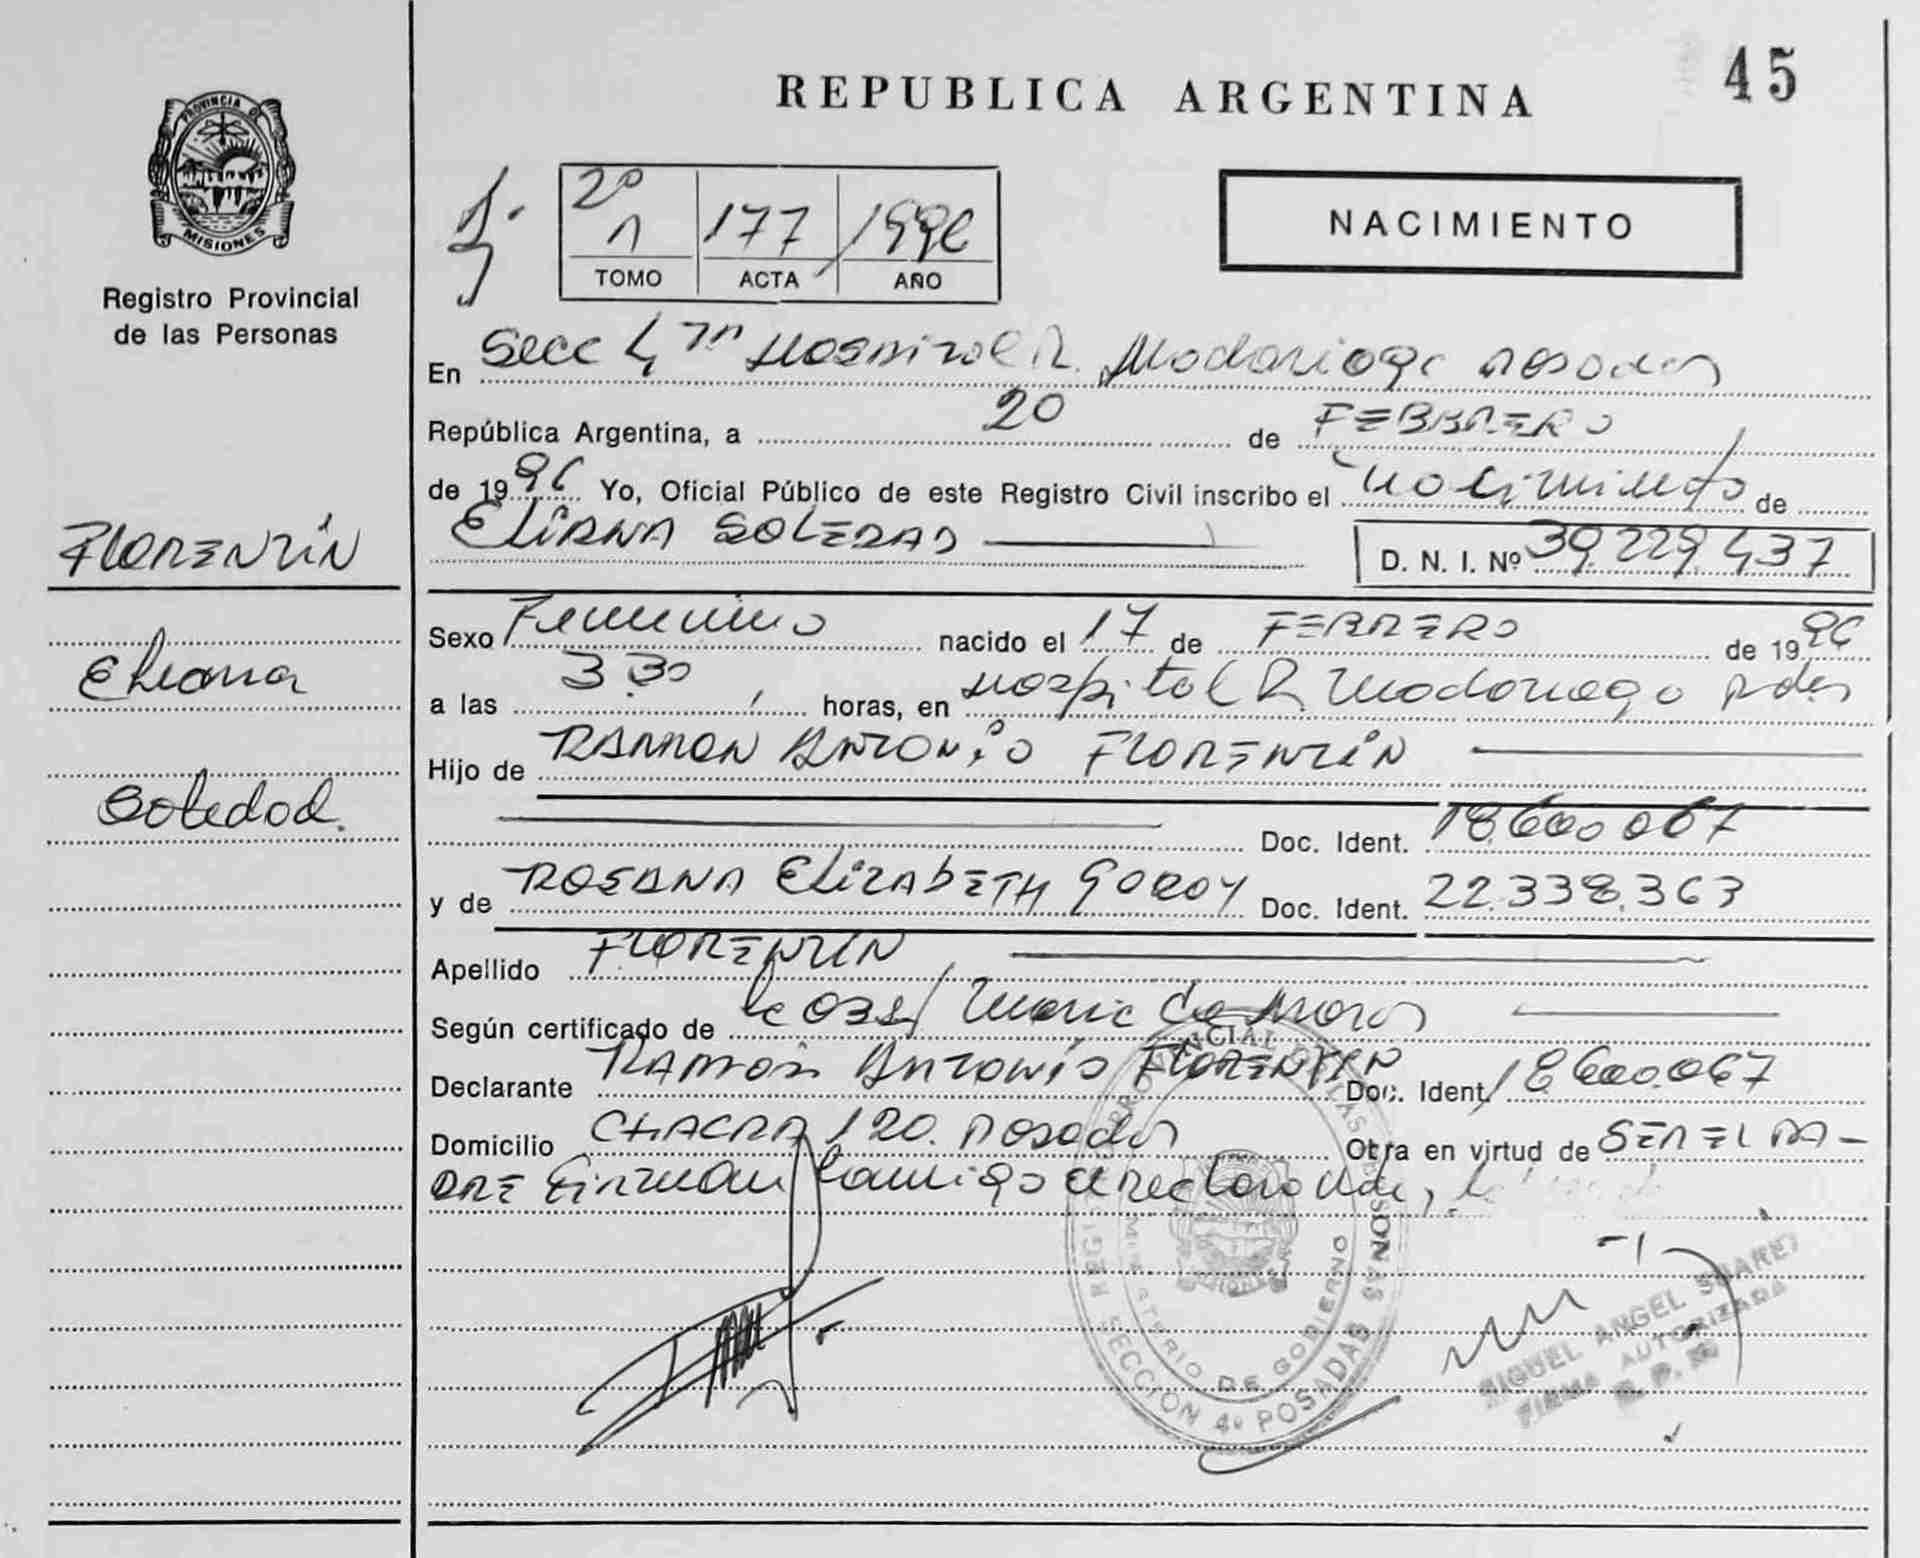 REPUBLICA ARGENTINA
45
PROVINCIA DE
MISIONES
Registro Provincial
de las Personas
2º
1 177 1996
TOMO ACTA AÑO
NACIMIENTO
En Secc 4ta Hospital R. Madariaga Posadas
República Argentina, a 20 de FEBRERO
de 1996 Yo, Oficial Público de este Registro Civil inscribo el nacimiento de
ELIANA SOLEDAD
D. N. I. Nº 39.229.437
FLORENTÍN
Eliana
Soledad.
Sexo Femenino nacido el 17 de FEBRERO de 1996
a las 3.30 horas, en Hospital R. Madariaga Pdas
Hijo de RAMON ANTONIO FLORENTÍN
Doc. Ident. 18.600.067
y de ROSANA ELIZABETH GODOY Doc. Ident. 22.338.363
Apellido FLORENTÍN
Según certificado de
Declarante RAMON ANTONIO FLORENTIN Doc. Ident. 18.600.067
Domicilio CHACRA 120. Posadas Otra en virtud de SER EL PA-
DRE Firman conmigo el declarante,
REGISTRO PROVINCIAL DE LAS PERSONAS
MINISTERIO DE GOBIERNO
SECCION 4ª POSADAS
MIGUEL ANGEL SUAREZ
FIRMA AUTORIZADA